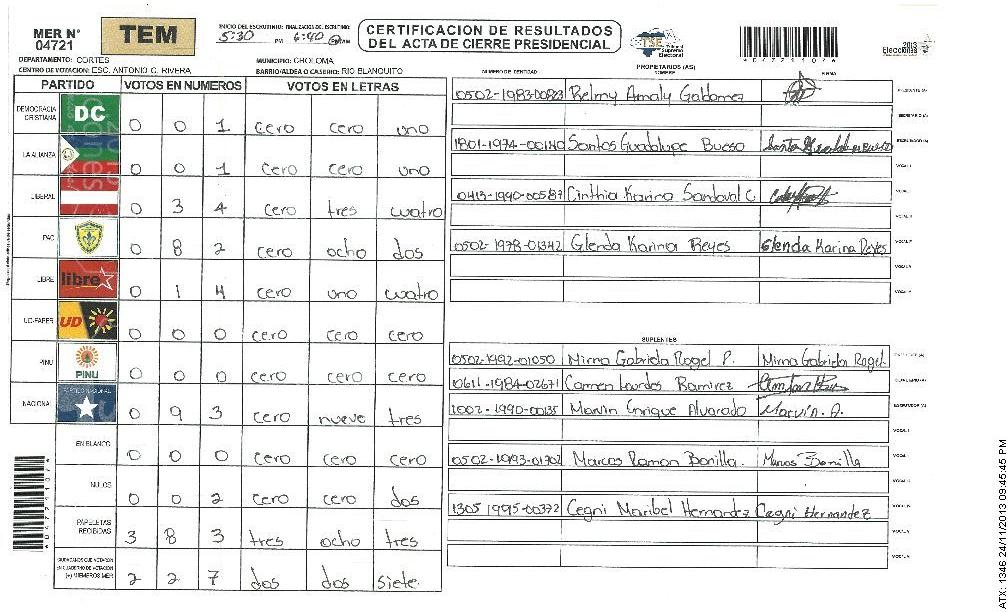 MER N° 04721
TEM
INICIO DEL ESCRUTINIO: FINALIZACION DEL ESCRUTINIO:
5:30 PM 6:40 AM
CERTIFICACION DE RESULTADOS
DEL ACTA DE CIERRE PRESIDENCIAL
TSE Tribunal Supremo Electoral
2013 Elecciones
DEPARTAMENTO: CORTES
MUNICIPIO: CHOLOMA
CENTRO DE VOTACION: ESC. ANTONIO C. RIVERA
BARRIO/ALDEA O CASERIO: RIO BLANQUITO
PARTIDO VOTOS EN NUMEROS VOTOS EN LETRAS
DEMOCRACIA CRISTIANA DC 0 0 1 cero cero uno
LA ALIANZA 0 0 1 cero cero uno
LIBERAL 0 3 4 cero tres cuatro
PAC 0 8 2 cero ocho dos
LIBRE libre 0 1 4 cero uno cuatro
UD-FAPER UD 0 0 0 cero cero cero
PINU PINU 0 0 0 cero cero cero
NACIONAL PARTIDO NACIONAL 0 9 3 cero nueve tres
EN BLANCO 0 0 0 cero cero cero
NULOS 0 0 2 cero cero dos
PAPELETAS RECIBIDAS 3 8 3 tres ocho tres
CIUDADANOS QUE VOTARON EN CUADERNO DE VOTACION (+) MIEMBROS MER 2 2 7 dos dos siete
PROPIETARIOS (AS)
NUMERO DE IDENTIDAD NOMBRE FIRMA
0502-1983-00823 Belmy Amaly Galdamez
1801-1974-00140 Santos Guadalupe Bueso
0413-1990-00587 Cinthia Karina Sandoval C.
0502-1978-01342 Glenda Karina Reyes Glenda Karina Reyes
SUPLENTES
0502-1992-01050 Mirna Gabriela Rogel P. Mirna Gabriela Rogel
0611-1984-02671 Carmen Lourdes Ramirez
1002-1990-00135 Marvin Enrique Alvarado Marvin. A.
0502-1993-01702 Marcos Ramon Bonilla. Marcos Bonilla
1305 1995-00372 Cegni Maribel Hernandez Cegni Hernandez
ATX: 1346 24/11/2013 09:45:45 PM